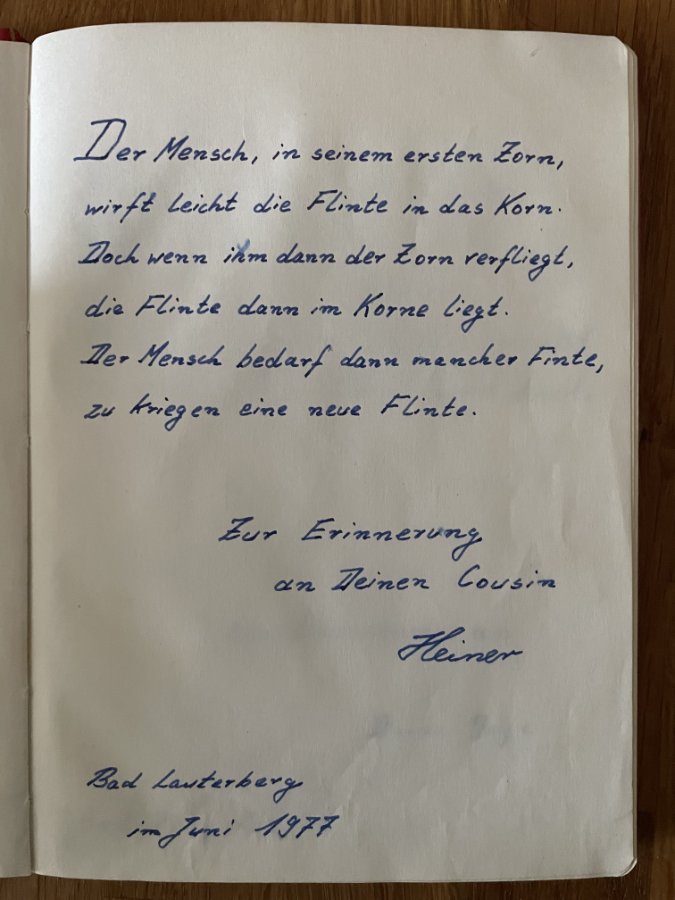 Der Mensch, in seinem ersten Zorn,
wirft leicht die Flinte in das Korn.
Doch wenn ihm dann der Zorn verfliegt,
die Flinte dann im Korne liegt.
Der Mensch bedarf dann mancher Finte,
zu kriegen eine neue Flinte.
Zur Erinnerung
an Deinen Cousin
Heiner
Bad Lauterberg
im Juni 1977